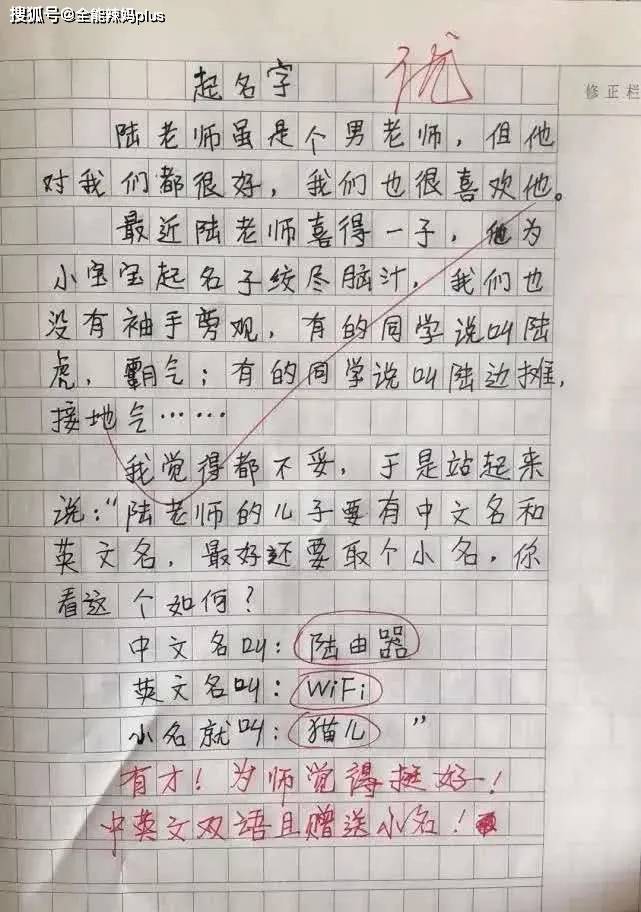 搜狐号@全能辣妈plus
优
修正栏
起名字
陆老师虽是个男老师，但他
对我们都很好，我们也很喜欢他。
最近陆老师喜得一子，他为
小宝宝起名子绞尽脑汁，我们也
没有袖手旁观，有的同学说叫陆
虎，霸气；有的同学说叫陆边摊，
接地气……
我觉得都不妥，于是站起来
说：“陆老师的儿子要有中文名和
英文名，最好还要取个小名，你
看这个如何？
中文名叫：陆由器
英文名叫：WiFi
小名就叫：猫儿”
有才！为师觉得挺好！
中英文双语且赠送小名！